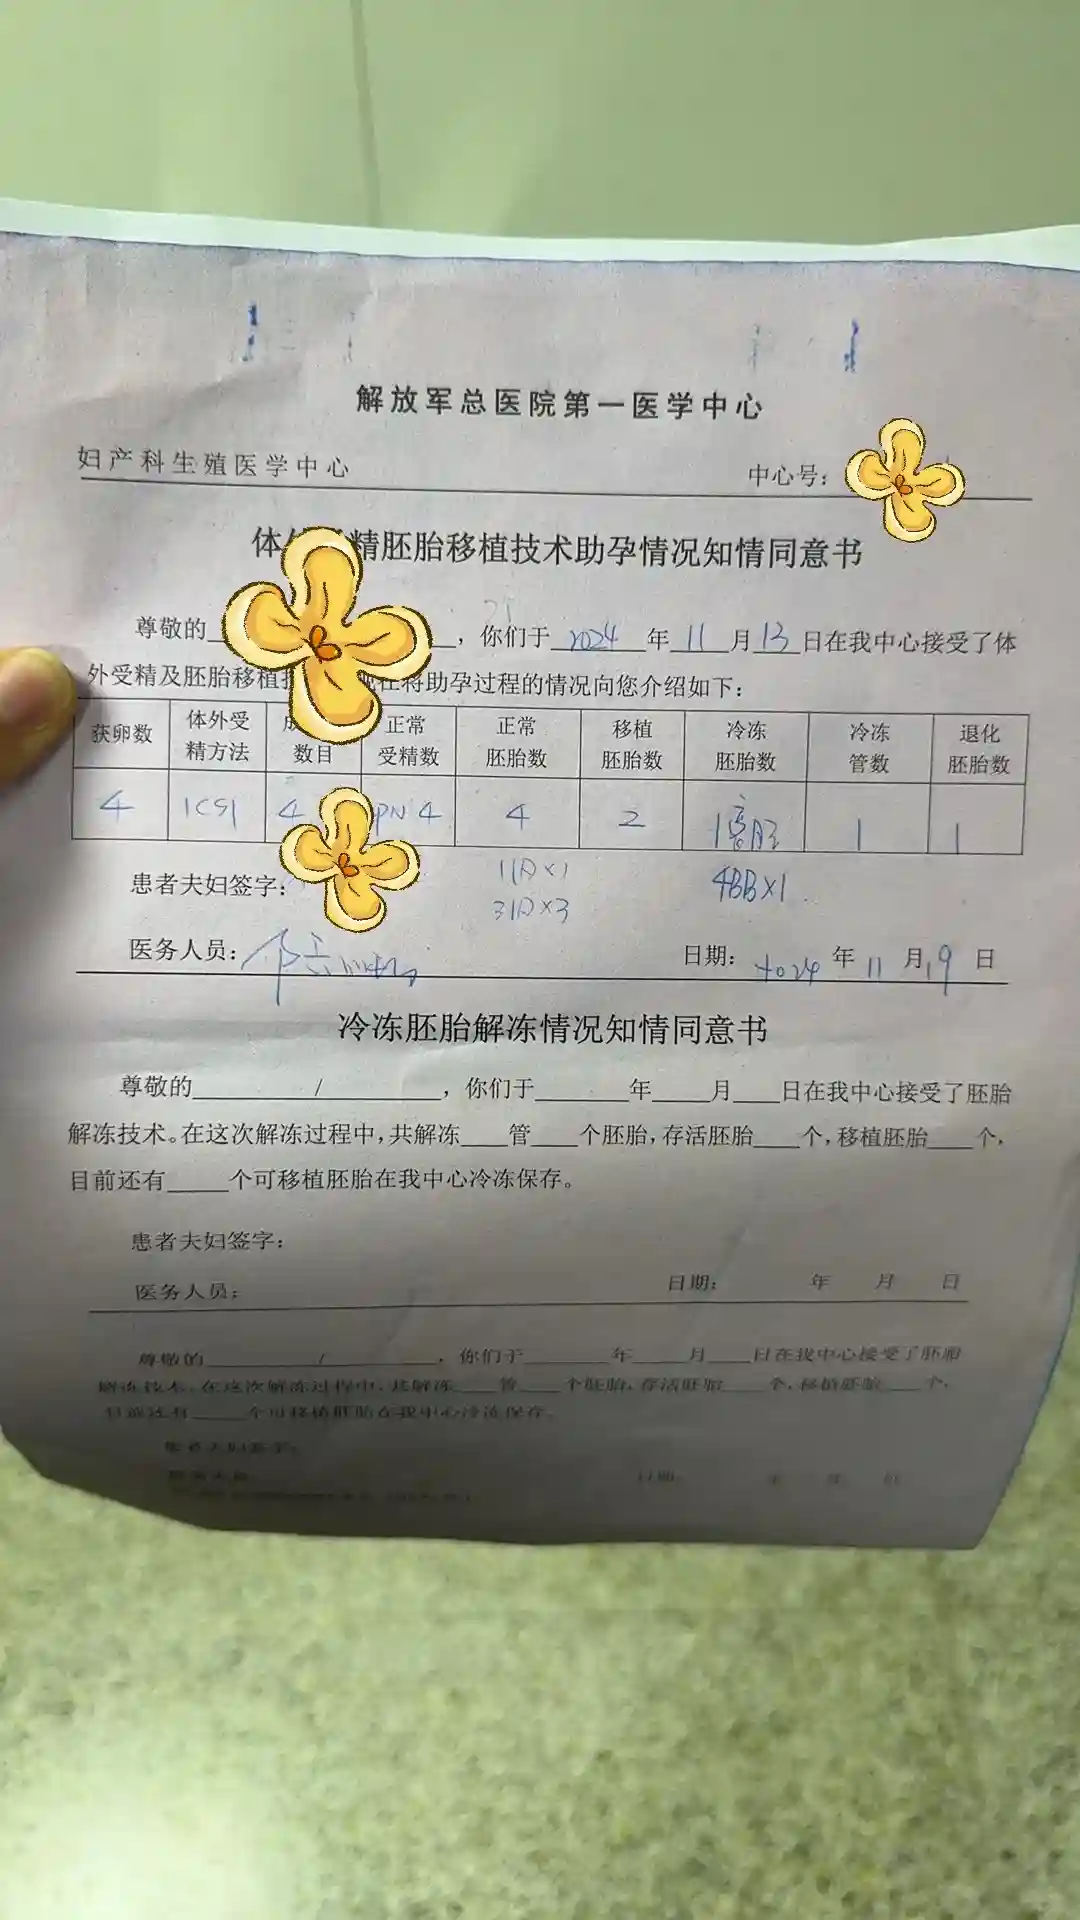 解放军总医院第一医学中心
妇产科生殖医学中心 中心号:
体外受精胚胎移植技术助孕情况知情同意书
尊敬的 ,你们于 2024 年 11 月 13 日在我中心接受了体
外受精及胚胎移植 将助孕过程的情况向您介绍如下:
获卵数 体外受精方法 数目 正常受精数 正常胚胎数 移植胚胎数 冷冻胚胎数 冷冻管数 退化胚胎数
4 ICSI 4 PN 4 4 2 1囊胚 1 1
患者夫妇签字: 11 ×1 4BB×1
31 ×3
医务人员: 日期: 2024 年 11 月 19 日
冷冻胚胎解冻情况知情同意书
尊敬的 / ,你们于 年 月 日在我中心接受了胚胎
解冻技术。在这次解冻过程中,共解冻 管 个胚胎,存活胚胎 个,移植胚胎 个,
目前还有 个可移植胚胎在我中心冷冻保存。
患者夫妇签字:
医务人员: 日期: 年 月 日
尊敬的 / ,你们于 年 月 日在我中心接受了胚胎
解冻技术。在这次解冻过程中,共解冻 管 个胚胎,存活胚胎 个,移植胚胎 个,
目前还有 个可移植胚胎在我中心冷冻保存。
患者夫妇签字:
医务人员: 日期: 年 月 日